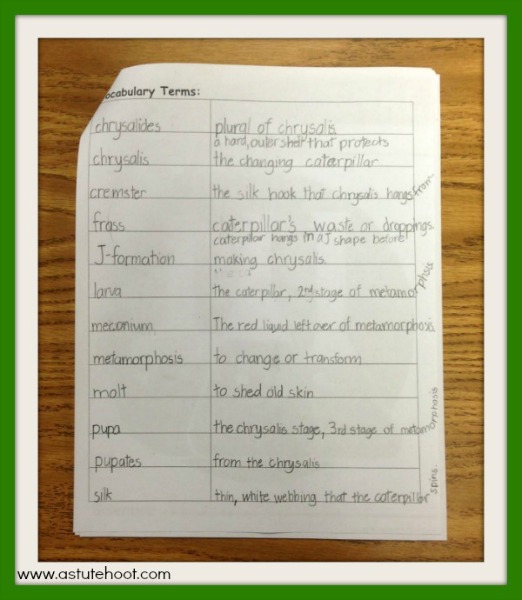 ocabulary Terms:
chrysalides plural of chrysalis
a hard, outer shell that protects
chrysalis the changing caterpillar
cremster the silk hook that chrysalis hangs from.
frass caterpillar's waste or droppings.
caterpillar hangs in a J shape before
J-formation making chrysalis.
larva the caterpillar, 2nd stage of metamorphsis
meconium The red liquid left over of metamorphosis
metamorphosis to change or transform
molt to shed old skin
pupa the chrysalis stage, 3rd stage of metamorphasis
pupates from the chrysalis
silk thin, white webbing that the caterpillar spins.
www.astutehoot.com